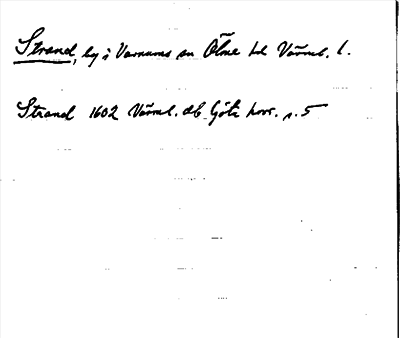 Strand, by i Varnums sn Ölme hd Värml. l.
Strand 1602 Värml. db Göta hovr. s. 5